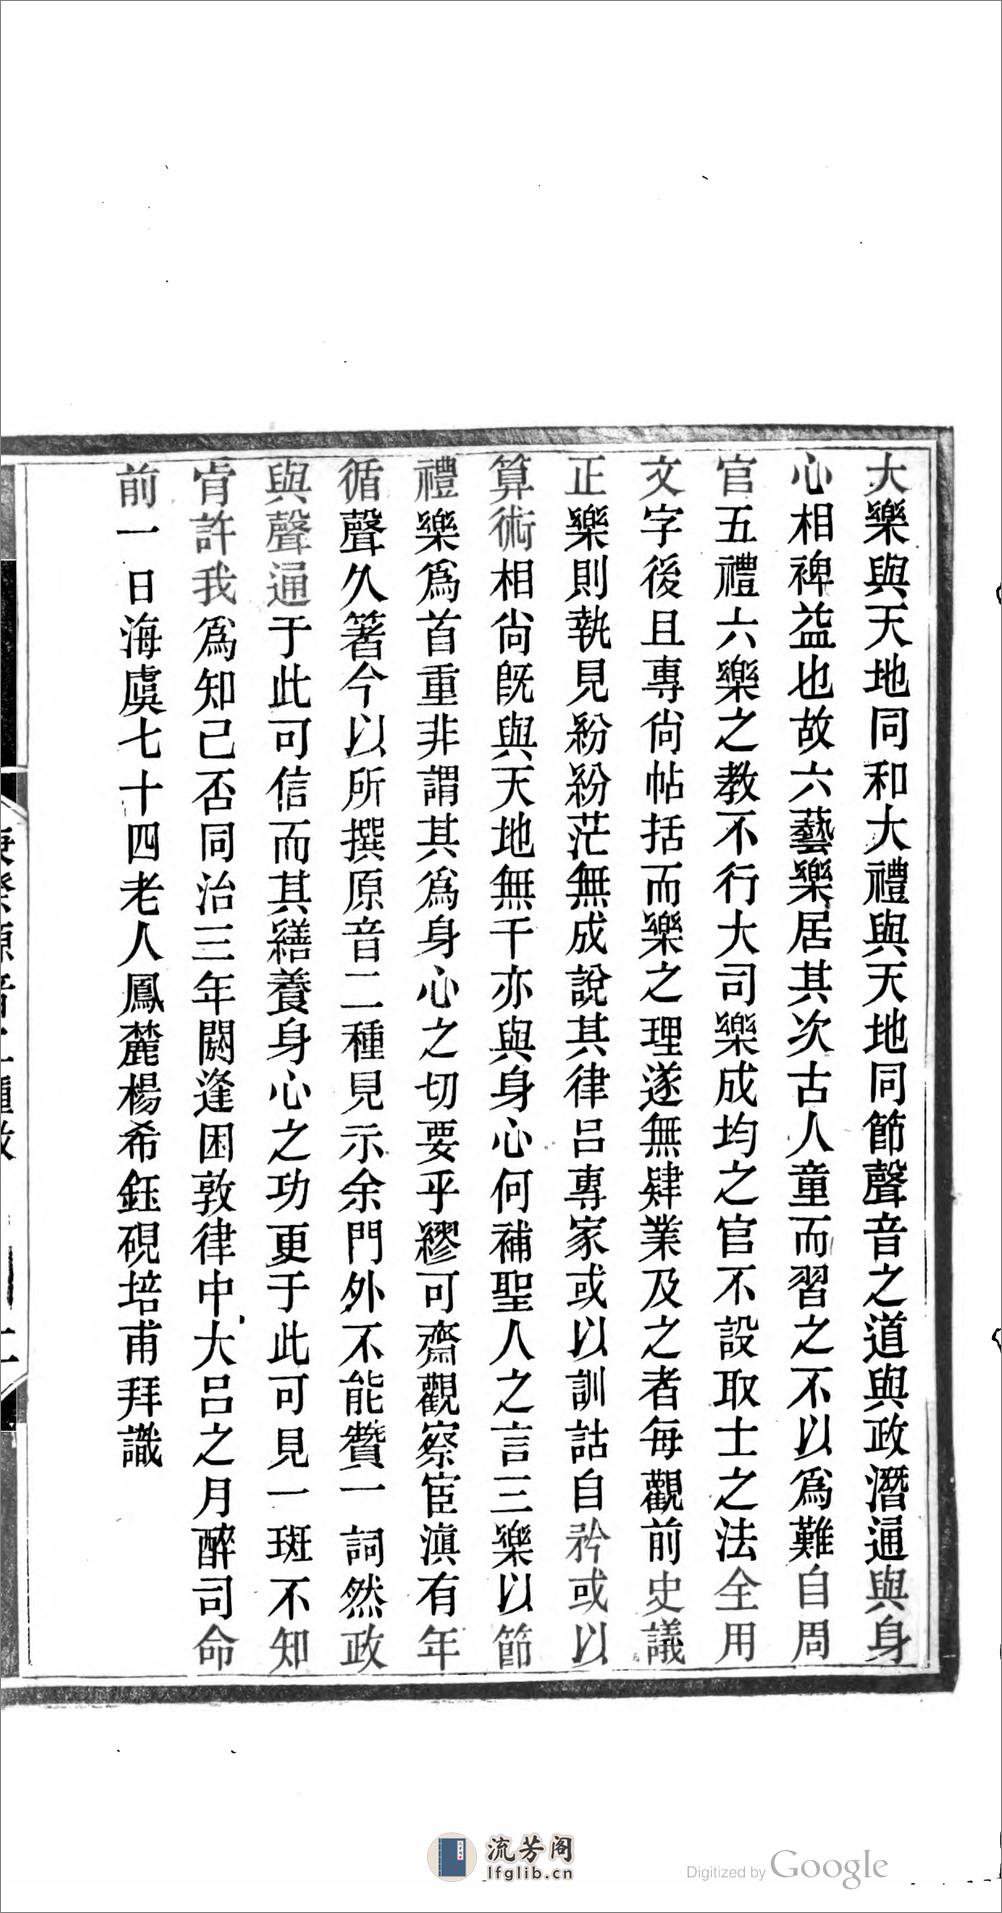 大樂與天地同和大禮與天地同節聲音之道與政潛通與身
心相裨益也故六藝樂居其次古人童而習之不以爲難自周
官五禮六樂之教不行大司樂成均之官不設取士之法全用
文字後且專尙帖括而樂之理遂無肄業及之者每觀前史議
正樂則執見紛紛茫無成說其律呂專家或以訓詁自矜或以
算術相尙旣與天地無干亦與身心何補聖人之言三樂以節
禮樂爲首重非謂其爲身心之切要乎繆可齋觀察宦滇有年
循聲久箸今以所撰原音二種見示余門外不能贊一詞然政
與聲通于此可信而其繕養身心之功更于此可見一斑不知
肯許我爲知己否同治三年閼逢困敦律中大呂之月醉司命
前一日海虞七十四老人鳳麓楊希鈺硯培甫拜識
庚癸原音二種敘
二
流芳阁
lfglib.cn
Digitized by Google